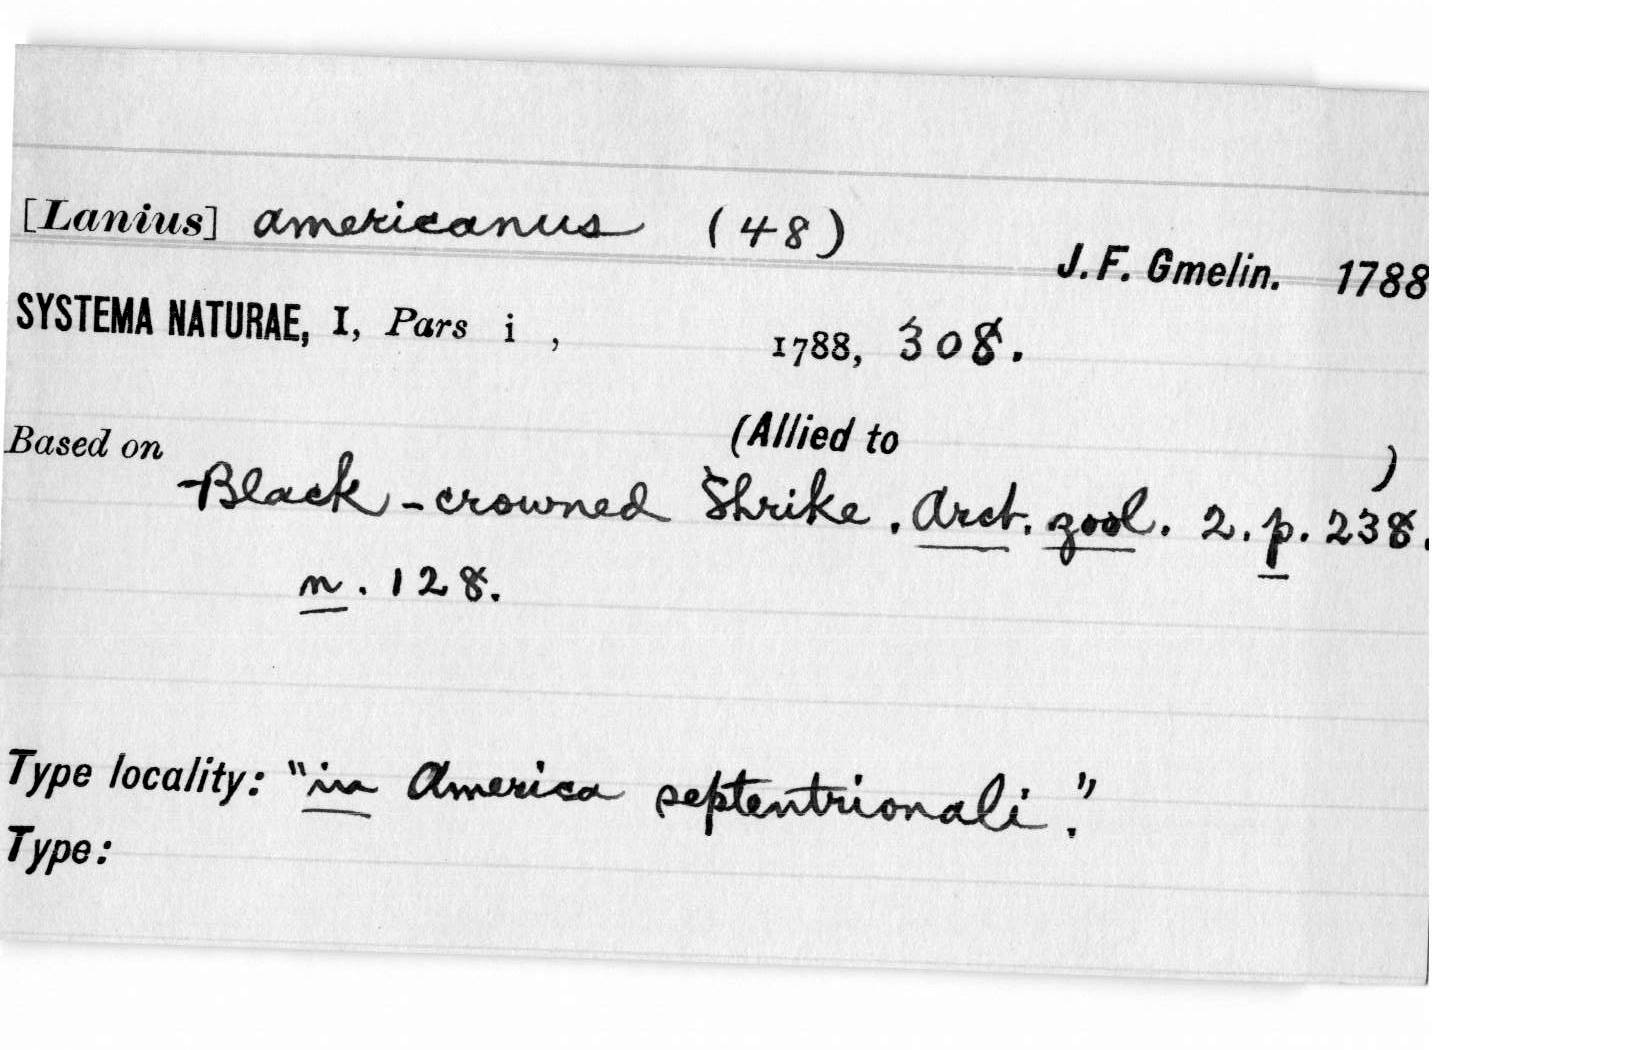 [Lanius] americanus (48)
J. F. Gmelin. 1788
SYSTEMA NATURAE, I, Pars i , 1788, 308.
(Allied to )
Based on
Black-crowned Shrike. Arct. zool. 2. p. 238.
n. 128.
Type locality: "in America septentrionali."
Type: